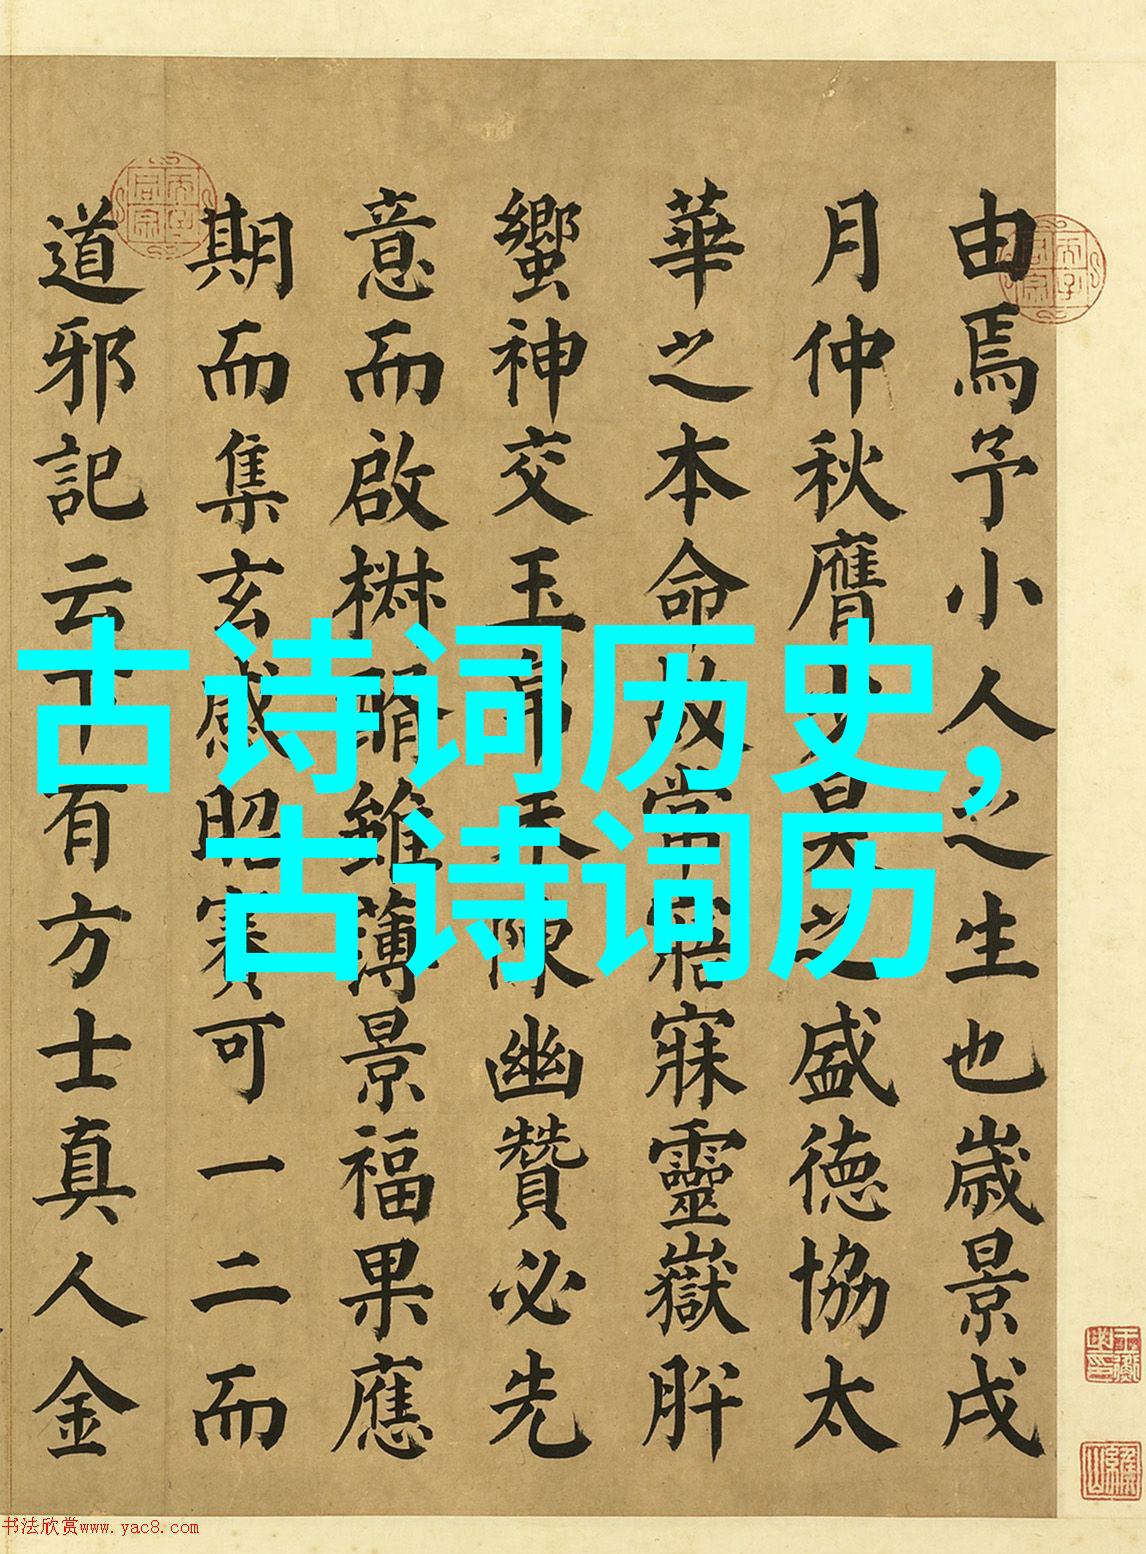 由焉予小人之生也歲景戌
月仲秋膺少昊之盛德協太
華之本命故常寤寐靈嶽肸
蠁神交玉帛未陳幽贊必先
意而啟椒醑雖薄景福果應
期而集玄感昭寞可一二而
道邪記云十有方士真人金
古诗词历史，
古诗词历
书法欣赏www.yac8.com